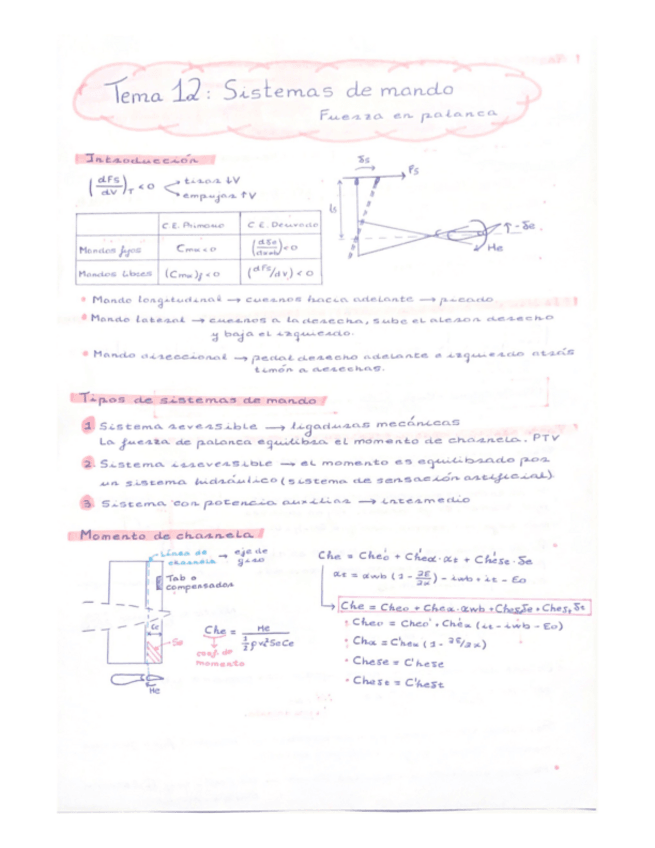 Tema 12: Sistemas de mando
Fuerza en palanca
Introducción
(dFs/dV)T < 0 tiras ↓V
empujas ↑V
δs
Fs
ls
-δe
He
C.E. Primario C.E. Derivado
Mandos fijos Cmα < 0 (dδe/dαwb) < 0
Mandos libres (Cmα)f < 0 (dFs/dV) < 0
• Mando longitudinal → cuernos hacia adelante → picado
• Mando lateral → cuernos a la derecha, sube el aleron derecho
y baja el izquierdo.
• Mando direccional → pedal derecho adelante e izquierdo atrás
timón a derechas.
Tipos de sistemas de mando
1 Sistema reversible → ligaduras mecánicas
La fuerza de palanca equilibra el momento de charnela. PTV
2 Sistema irreversible → el momento es equilibrado por
un sistema hidráulico (sistema de sensación artificial)
3 Sistema con potencia auxiliar → intermedio
Momento de charnela
Línea de charnela → eje de giro
Tab o
compensador
Ce
Se
He
Che = He / ½ρV²SeCe
coef. de
momento
Che = Che'o + C'heα·αt + C'heδe·δe
αt = αwb (1 - ∂E/∂α) - iwb + it - Eo
Che = Cheo + Cheα·αwb + Cheδe δe + Cheδt δt
• Cheo = Che'o + C'heα (it - iwb - Eo)
• Chα = C'heα (1 - ∂E/∂α)
• Cheδe = C'heδe
• Cheδt = C'heδt